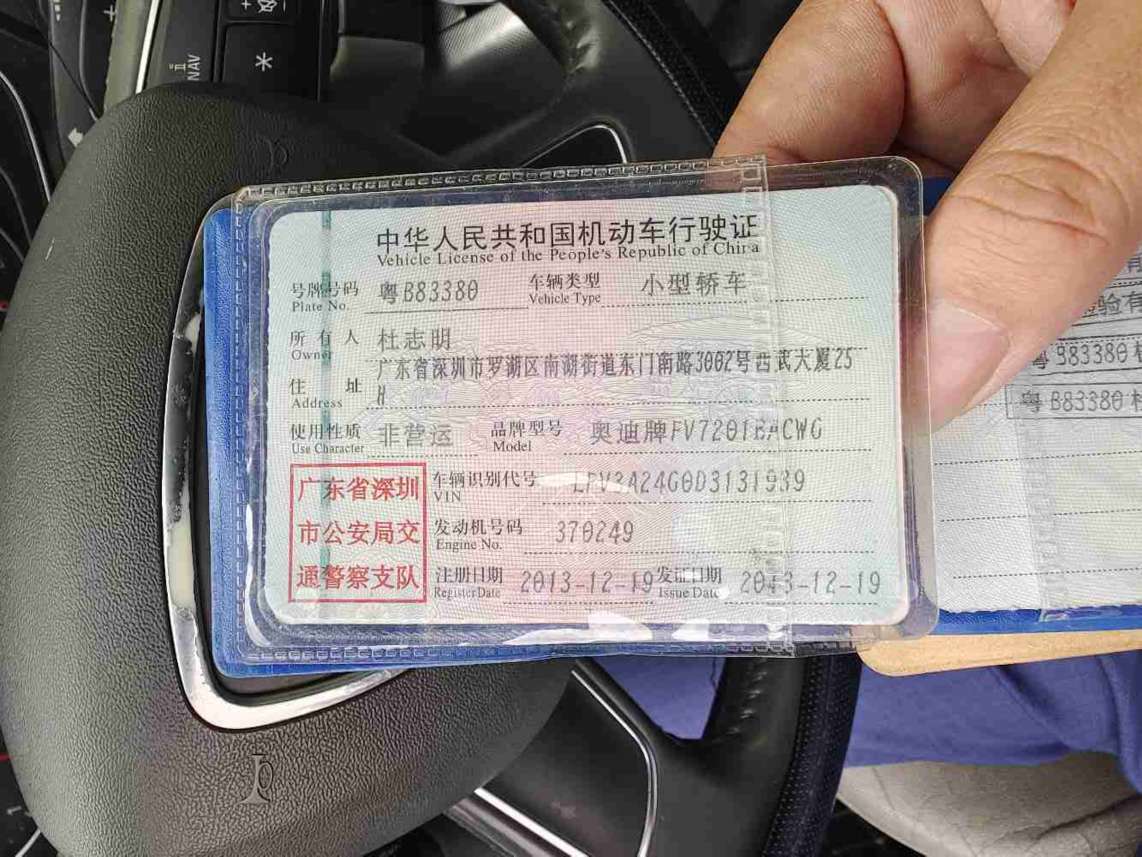 NAV
中华人民共和国机动车行驶证
Vehicle License of the People's Republic of China
号牌号码 粤B83380 车辆类型 小型轿车
Plate No. Vehicle Type
所有人 杜志明
Owner
住址 广东省深圳市罗湖区南湖街道东门南路3002号西武大厦25
H
Address
使用性质 非营运 品牌型号 奥迪牌FV7201BACWG
Use Character Model
广东省深圳
市公安局交
通警察支队
车辆识别代号 LFV3A24G0D3131939
VIN
发动机号码 370249
Engine No.
注册日期 2013-12-19 发证日期 2013-12-19
Register Date Issue Date
检验有
粤B83380
粤B83380